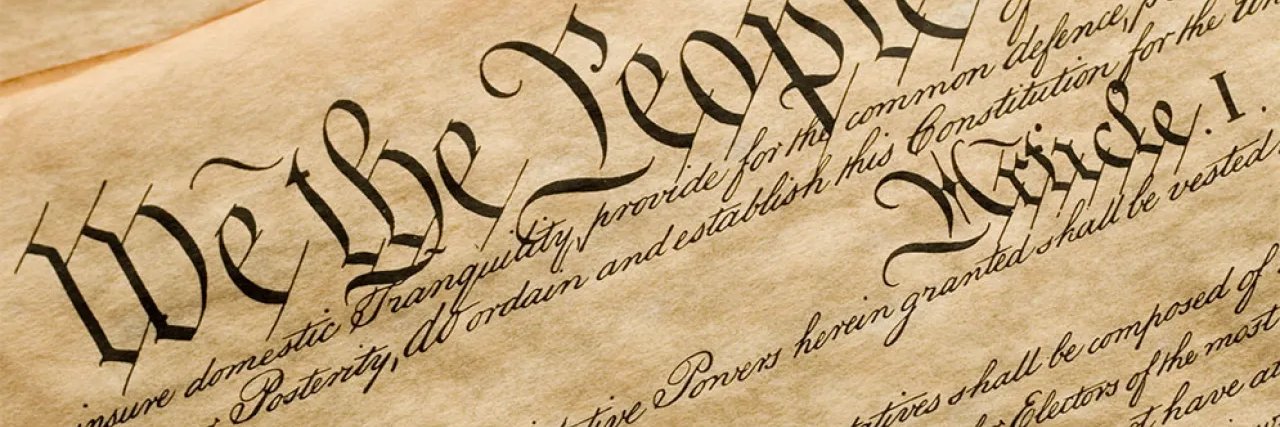 We the People
insure domestic Tranquility, provide for the common defence,
Posterity, do ordain and establish this Constitution for the
Article. I.
Powers herein granted shall be vested
shall be composed of
Electors of the most
have